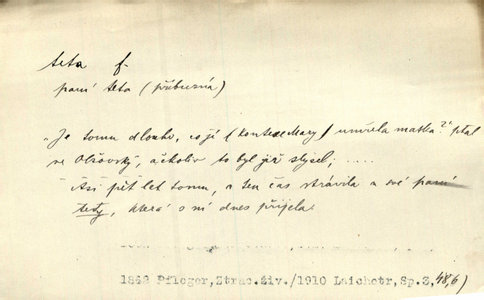 teta f.
paní teta (příbuzná)
„Je tomu dlouho, co jí (kontesse Mary) umřela matka?" ptal
se Olšovský, ačkoliv to byl již slyšel; .....
„Asi pět let tomu, a ten čas strávila u své paní
tety, která o ní dnes přijela.
1842 Pfleger,Ztrac.živ./1910 Laichter,Sp.3,48,6)